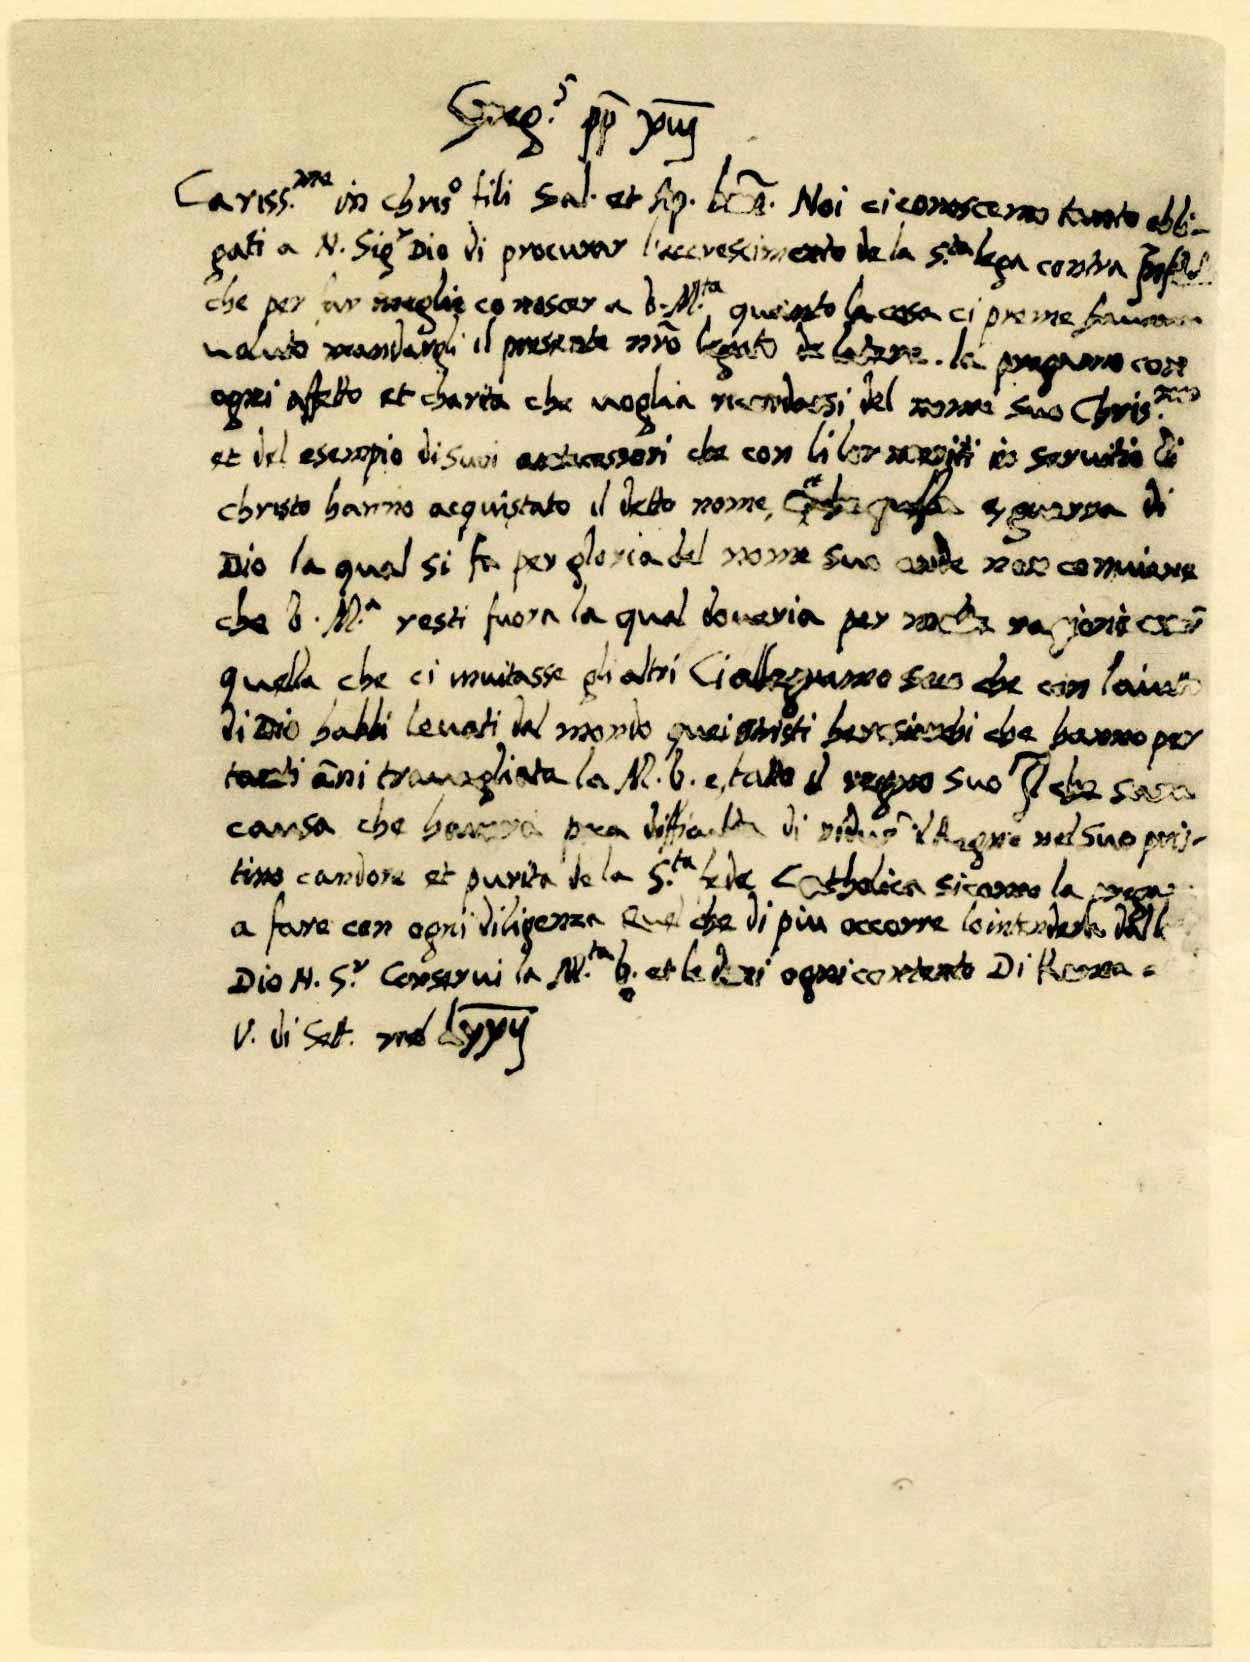 Greg.s pp xiij
Cariss.me in chris.o fili sal. et Ap. Noi ci conoscemo tanto obbli-
gati a N. Sig.r Dio di procurar l'accrescimento de la S.ta lega contra
che per far meglio conoscer a v. M.ta quanto la cosa ci preme
uoluto mandargli il presente nrõ legato de latere. la pregamo con
ogni affetto et charita che uoglia ricordarsi del nome suo Chris.mo
et del esempio di suoi antecessori che con li lor meriti in seruitio di
christo hanno acquistato il detto nome, guerra di
Dio la qual si fa per gloria del nome suo onde non conuiene
che v. M.a resti fuora la qual doueria per molte ragioni
quella che ci inuitasse gli altri Ci allegramo seco che con l'aiuto
di Dio habbi leuati dal mondo quei tristi che hanno per
tanti ãni trauagliata la M. v. e tutto il regno suo Il che sara
causa che hauera poca difficulta di il Regno nel suo pris-
tino candore et purita de la S.ta fede Catholica sicome la
a fare con ogni diligenza Quel che di piu occorre lo intendera dal
Dio N. S.r Conserui la M.ta v. et le dia ogni contento Di Roma a
V. di Sett. nel lxxij